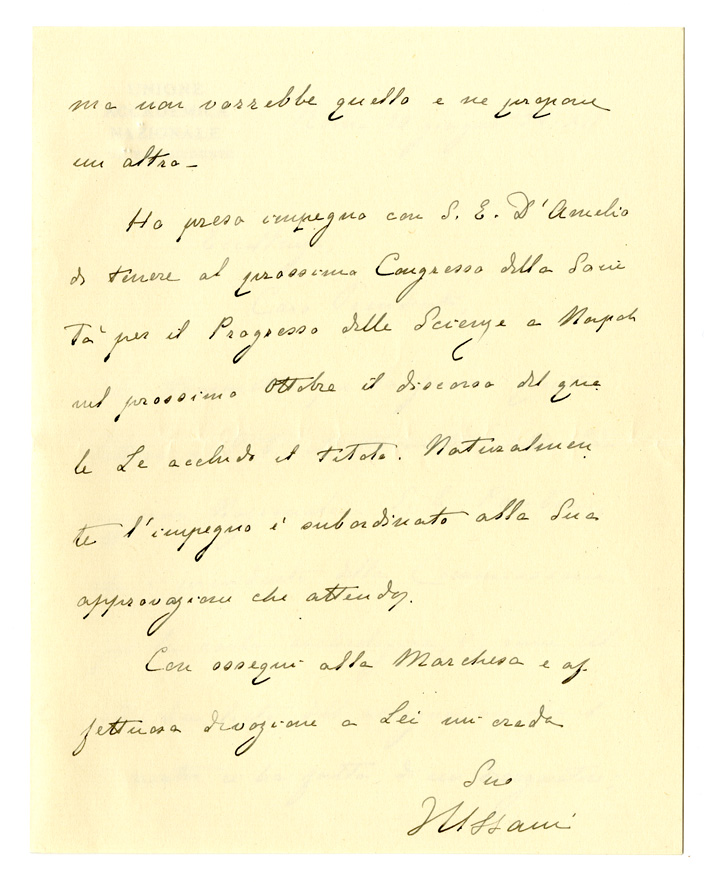 ma non vorrebbe quello e ne propone
un altro –
Ho preso impegno con S. E. D'Amelio
di tenere al prossimo Congresso della Socie
tà per il Progresso delle Scienze a Napoli
nel prossimo Ottobre il discorso del qua
le Le accludo il titolo. Naturalmen
te l'impegno è subordinato alla Sua
approvazione che attendo.
Con ossequi alla Marchesa e af
fettuosa divozione a Lei mi creda
Suo